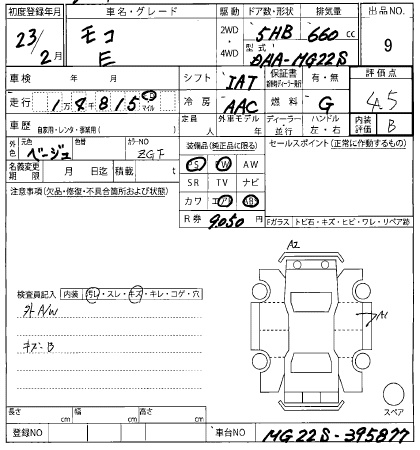 初度登録年月 車名・グレード 駆動 ドア数・形状 排気量 出品NO.
23/2月 モコ E 2WD・4WD 5HB 660cc 9
型式 DAA-MG22S
車検 年 月 シフト IAT 保証書 有・無 評価点 4.5
走行 1万4815 km マイル 冷房 AAC 燃料 G
車歴 自家用・レンタ・事業用( ) 定員 人 外車モデル 年 ディーラー・並行 ハンドル 左・右 内装評価 B
外色 元色 ベージュ 色替 カラーNO ZGF
装備品(純正品に限る) セールスポイント(正常に作動するもの)
名義変更期限 月 日迄 積載 t
PS PW AW
注意事項(欠品・修復・不具合箇所および状態)
SR TV ナビ
カワ エアB ABS
R券 9050 Fガラス トビ石・キズ・ヒビ・ワレ・リペア跡
A2
検査員記入 内装 汚レ・スレ・キズ・キレ・コゲ・穴
外A/W
A1
キズ-B
スペア
長さ cm 幅 cm 高さ cm
登録NO 車台NO MG22S-395877